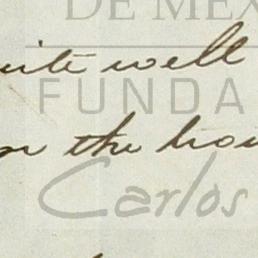 DE MEX
uite well
FUNDA
on the hou
Carlos